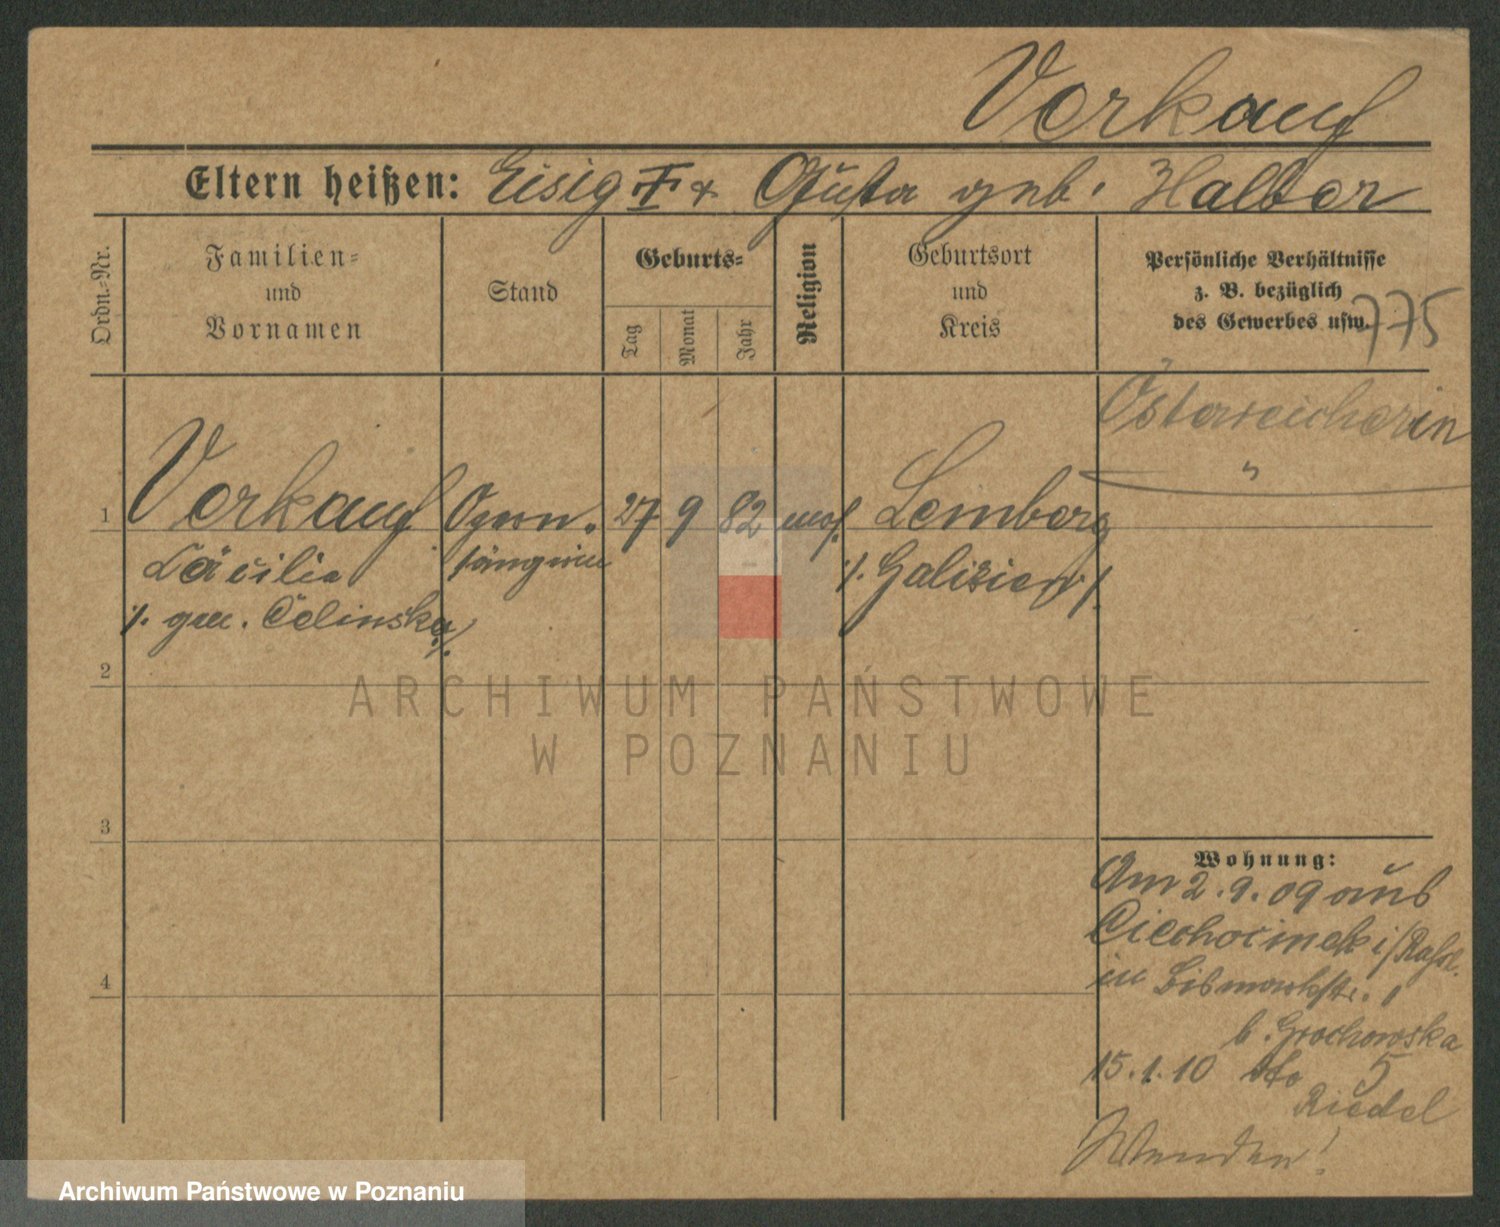 Verkauf
Eltern heißen: Eisig V. & Gusta geb. Halber
Ordn.-Nr.
Familien-
und
Vornamen
Stand
Geburts-
Tag
Monat
Jahr
Religion
Geburtsort
und
Kreis
Persönliche Verhältnisse
z. B. bezüglich
des Gewerbes usw.
775
Österreicherin
"
1 Verkauf Opern- 27 9 82 mos. Lemberg
Cäcilie sängerin ·/. Galizien ·/.
·/. gen. Celinska ·/.
2
3
4
ARCHIWUM PAŃSTWOWE
W POZNANIU
Wohnung:
Am 2.9.09 aus
Ciechocinek i/Rußl.
in Bismarkstr. 1
b. Grochowska
15.1.10 dto 5
Riedel
Wenden!
Archiwum Państwowe w Poznaniu